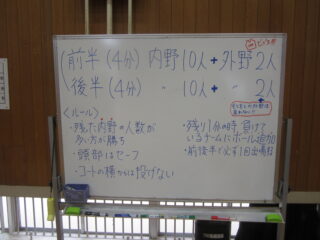 前半(4分) 内野10人+外野2人
後半(4分) 〃 10人+ 〃 2人
<ルール>
・残った内野の人数が
多い方が勝ち
・頭部はセーフ
・コートの横からは投げない
・残り1分の時、負けて
いるチームにボール追加
・前後半で必ず1回出場